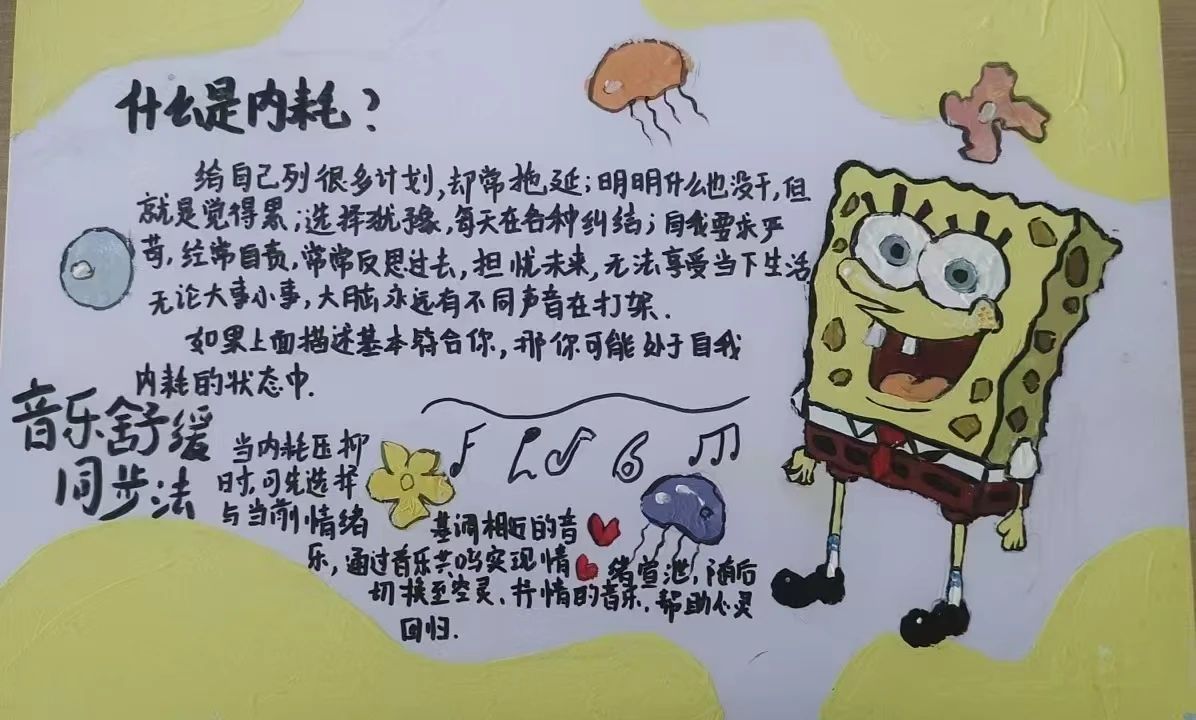 什么是内耗？
给自己列很多计划,却常拖延;明明什么也没干,但
就是觉得累;选择犹豫,每天在各种纠结;自我要求严
苛,经常自责,常常反思过去,担忧未来,无法享受当下生活
无论大事小事,大脑永远有不同声音在打架.
如果上面描述基本符合你,那你可能处于自我
内耗的状态中.
音乐舒缓
同步法
当内耗压抑
时,可先选择
与当前情绪
基调相近的音
乐,通过音乐共鸣实现情绪宣泄,随后
切换至空灵、抒情的音乐,帮助心灵
回归.